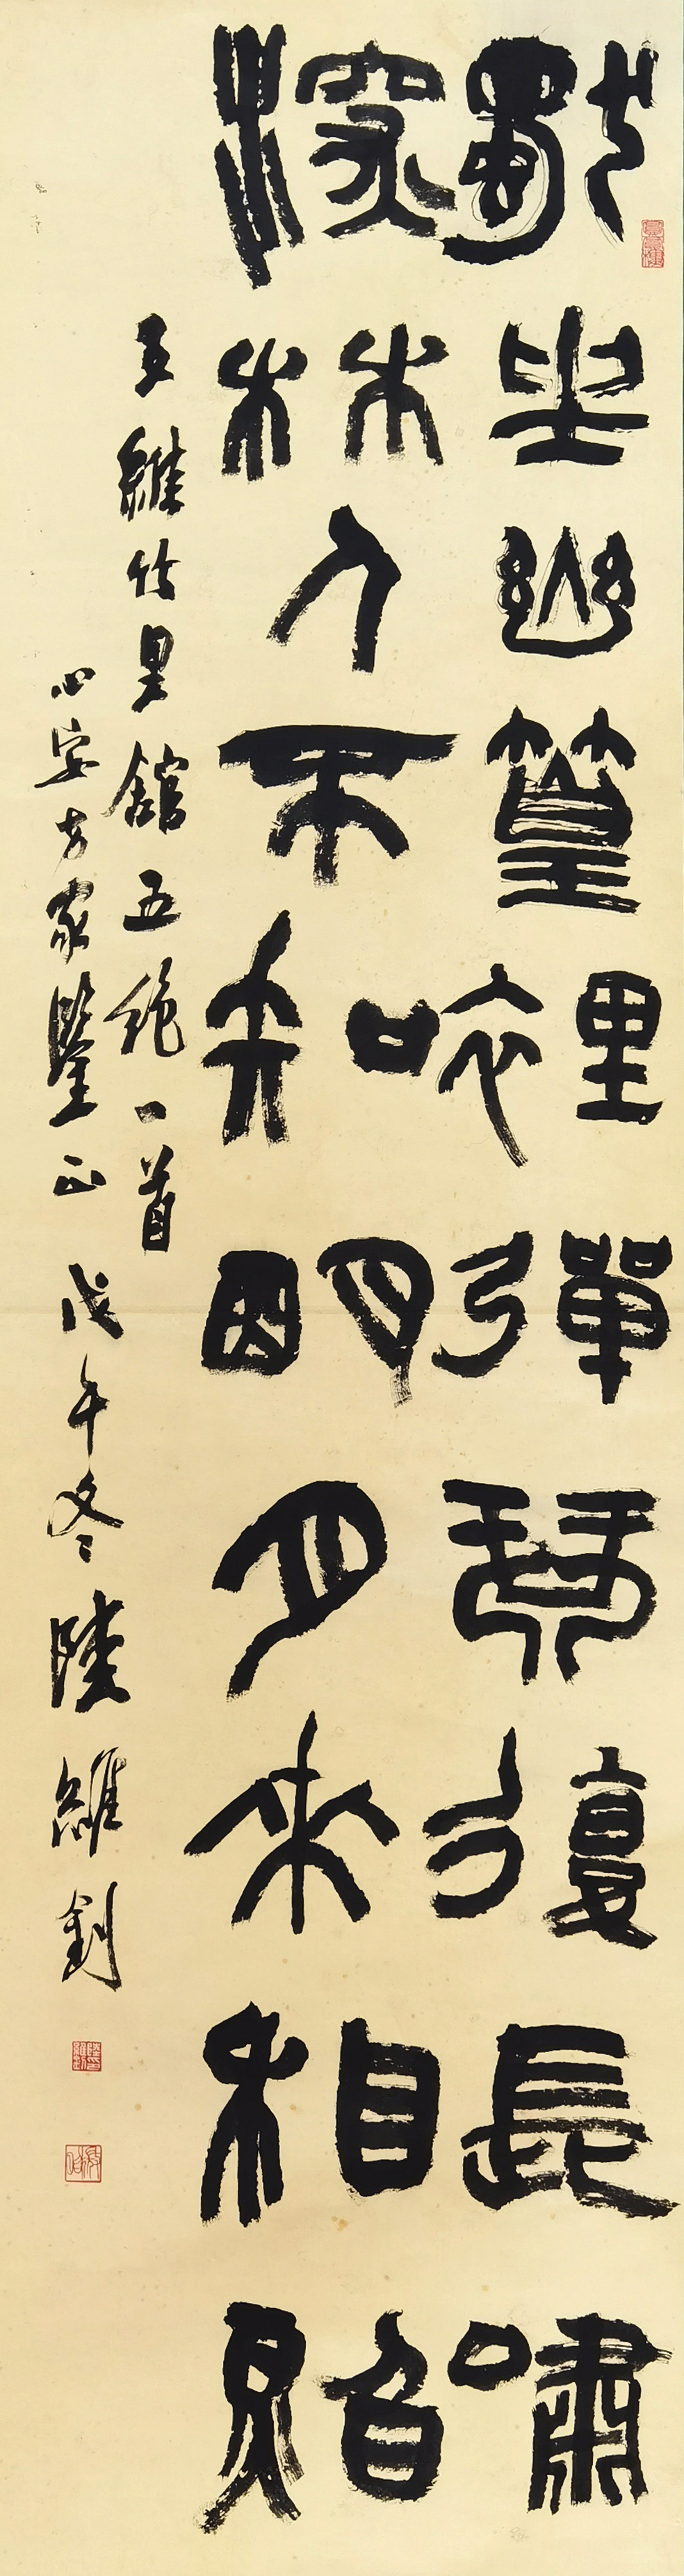 獨坐幽篁裡彈琴復長嘯
深林人不知朙月來相照
王維竹里館五絕一首
心安方家鑒正戊午冬陸維釗